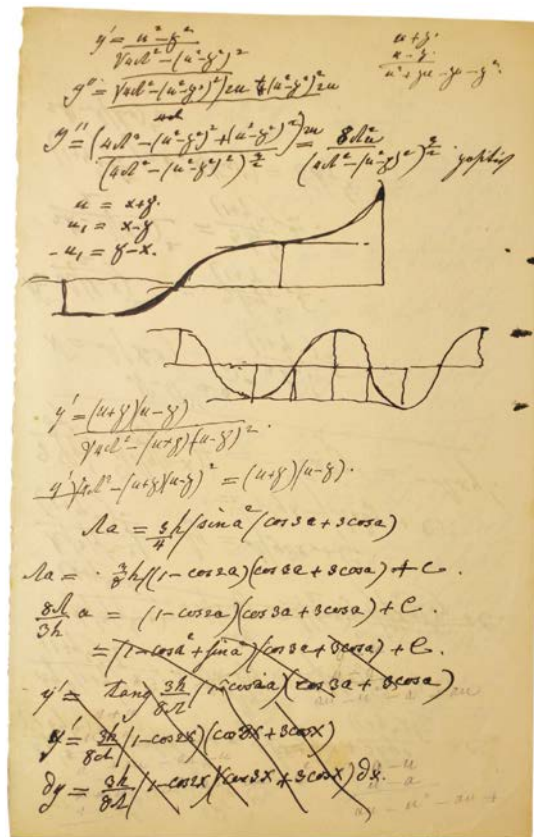 y' = u² - g²
√4Λ² - (u² - g²)²
u + g
u - g
u² + gu - gu - g².
y'' = √4Λ² - (u² - g²)²) 2u + (u² - g²)² 2u
y'' = (4Λ² - (u² - g²)² + (u² - g²)²) 2u = 8Λ²u
(4Λ² - (u² - g²)²)^3/2 (4Λ² - (u² - g²)²)^3/2
u = x + g.
u₁ = x - g
- u₁ = g - x.
y' = (u+g)(u-g)
√4Λ² - (u+g)(u-g)².
y' √4Λ² - (u+g)(u-g)² = (u+g)(u-g).
Λa = 3/4 h ∫ sin a² (cos 3a + 3 cos a)
Λa = 3/8 h ∫(1 - cos 2a)(cos 3a + 3 cos a) + C.
8Λ/3h a = (1 - cos 2a)(cos 3a + 3 cos a) + C.
= (1 - cos a² + sin a²)(cos 3a + 3 cos a) + C.
y' = tang 3h/8Λ (1 - cos 2a)(cos 3a + 3 cos a)
y' = 3h/8Λ (1 - cos 2x)(cos 3x + 3 cos x)
∂y = 3h/8Λ (1 - cos 2x)(cos 3x + 3 cos x) ∂x.